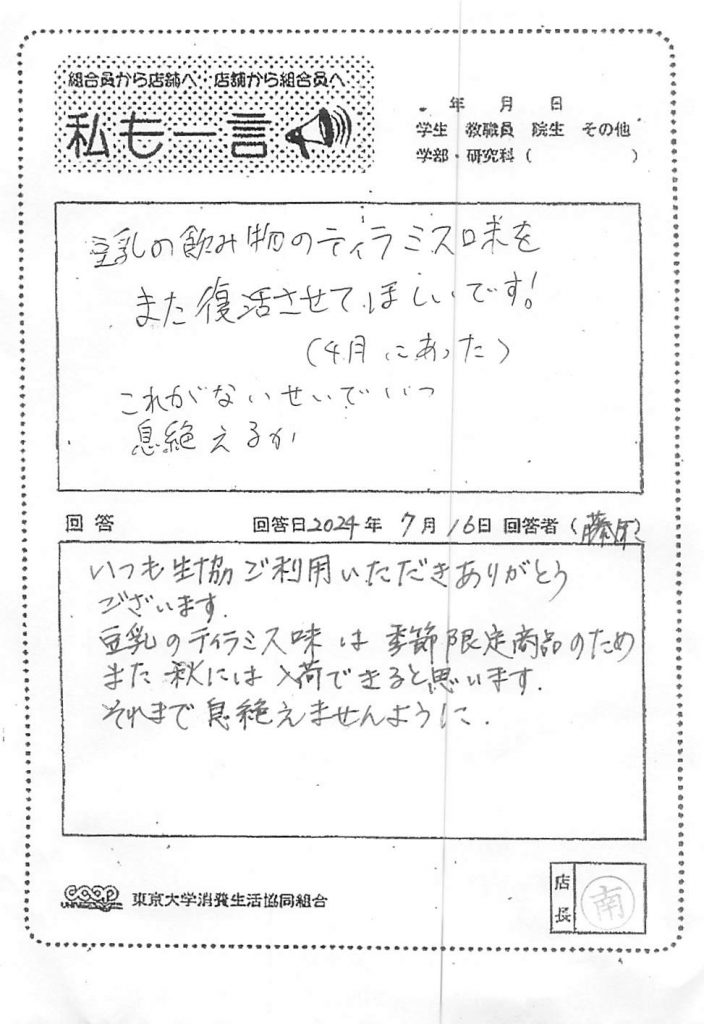 組合員から店舗へ・店舗から組合員へ
私も一言
年 月 日
学生 教職員 院生 その他
学部・研究科（ ）
豆乳の飲み物のティラミス味を
また復活させてほしいです!
(4月にあった)
これがないせいでいつ
息絶えるか
回答 回答日2024年 7月16日 回答者（藤原）
いつも生協ご利用いただきありがとう
ございます.
豆乳のティラミス味は季節限定商品のため
また秋には入荷できると思います.
それまで息絶えませんように.
CO-OP
UNIVERSITY
東京大学消費生活協同組合
店長
南